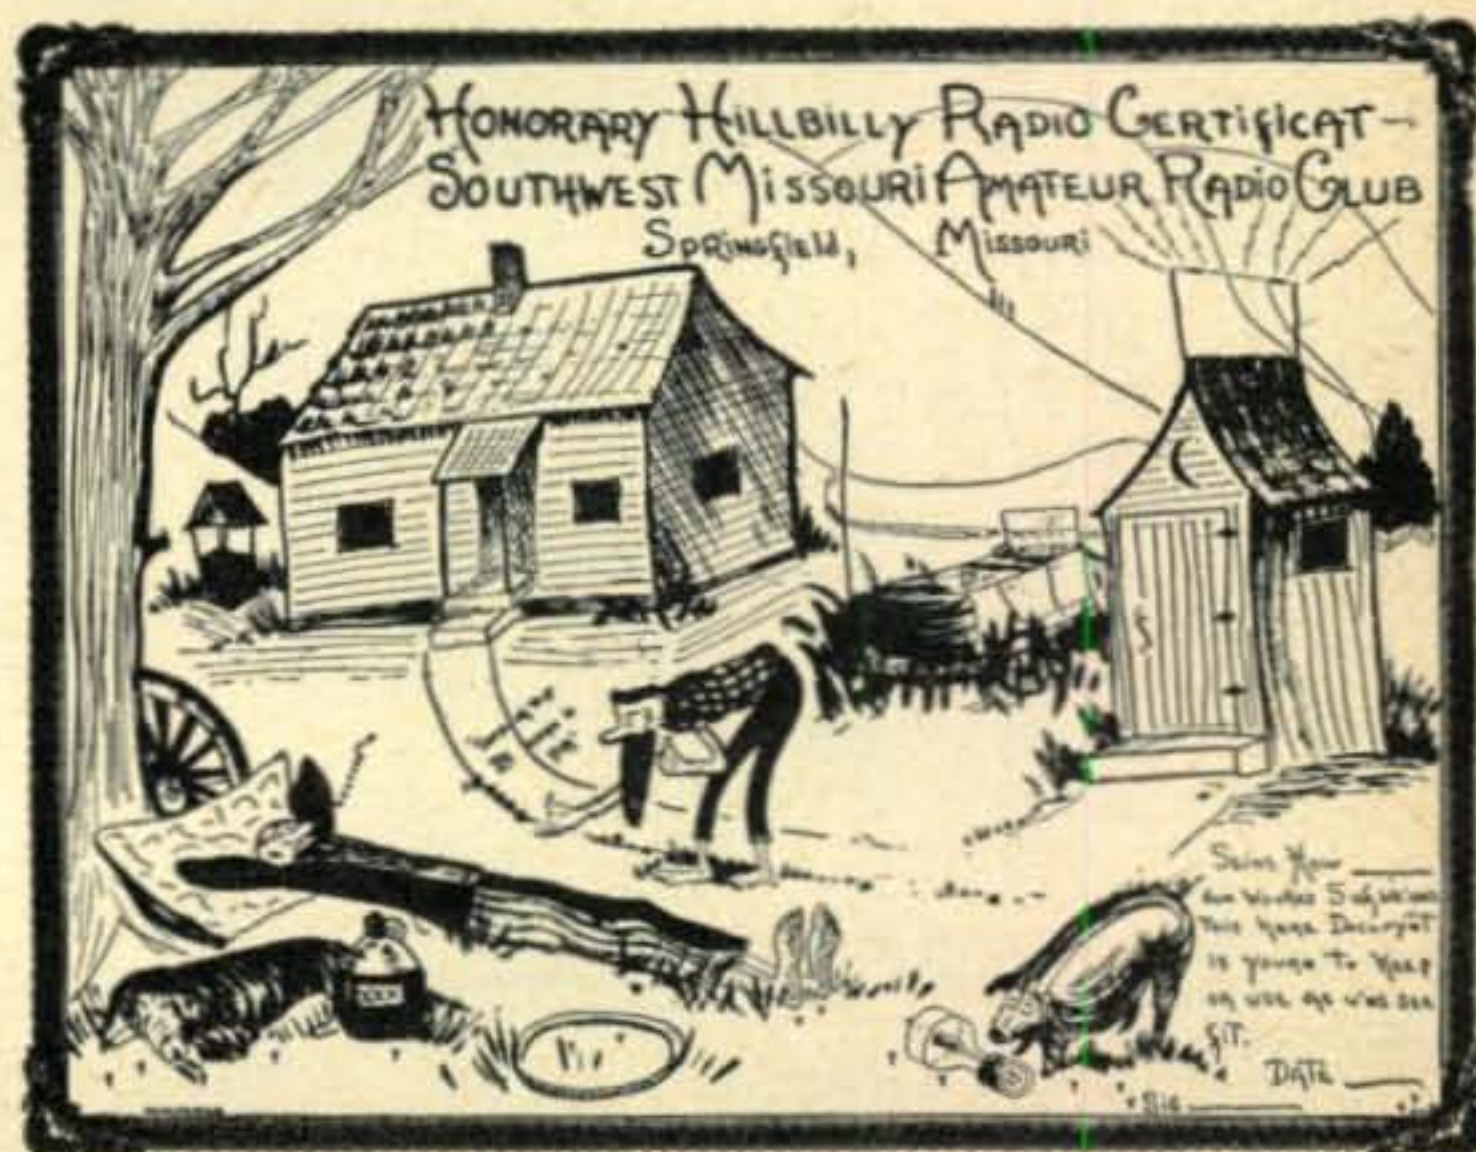 HONORARY HILLBILLY RADIO CERTIFICAT-
SOUTHWEST MISSOURI AMATEUR RADIO CLUB
SPRINGFIELD, MISSOURI
XXX
Seins How
This here
is yourn to keep
or use as
fit.
DATE
SIG